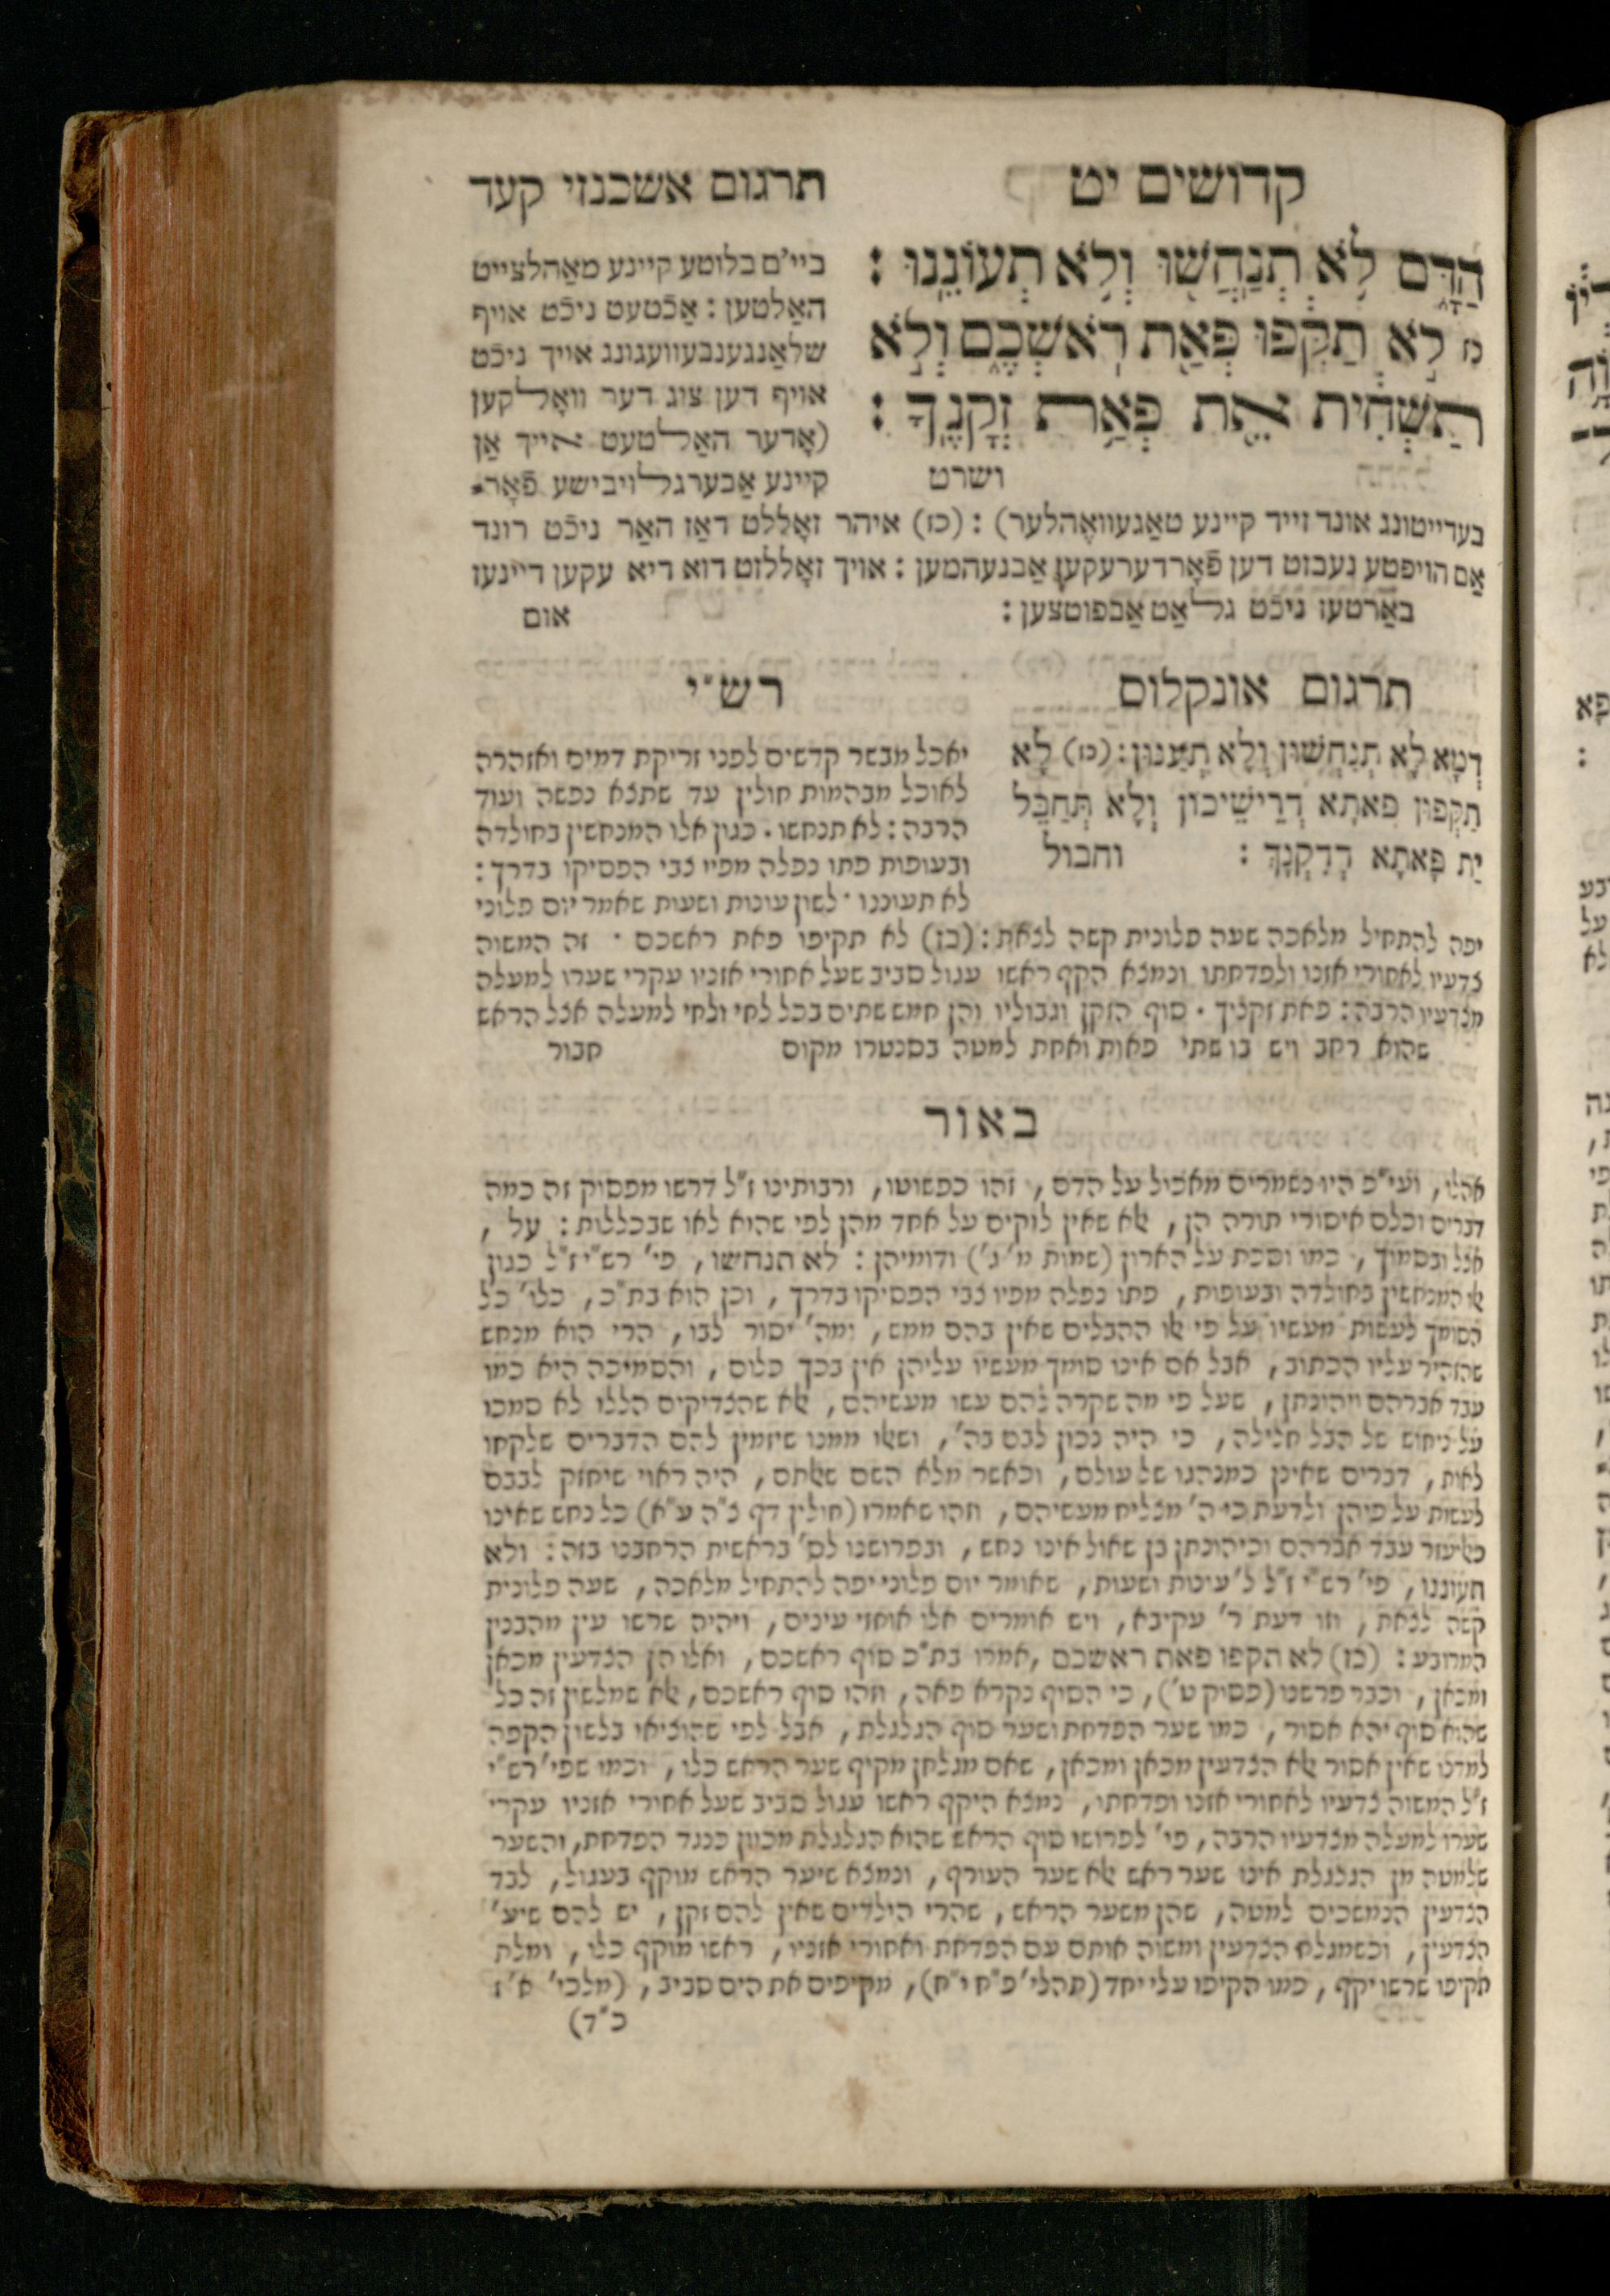 קדושים יט
תרגום אשכנזי קעד
הַדָּ֑ם לֹ֥א תְנַחֲשׁ֖וּ וְלֹ֥א תְעוֹנֵֽנוּ׃
כז לֹ֣א תַקִּ֔פוּ פְּאַ֖ת רֹֽאשְׁכֶ֑ם וְלֹ֣א
תַשְׁחִ֔ית אֵ֖ת פְּאַ֥ת זְקָנֶֽךָ׃
ושרט
ביי'ם בלוטע קיינע מאַהלצייט
האַלטען : אַכֿטעט ניכֿט אויף
שלאַנגענבעוועגונג אויך ניכֿט
אויף דען צוג דער וואָלקען
(אָדער האַלטעט אייך אַן
קיינע אַבערגלויבישע פֿאָר-
בעדייטונג אונד זייד קיינע טאַגעוועהלער) : (כז) איהר זאָללט דאַז האַר ניכֿט רונד
אַם הויפטע נעבזט דען פֿאָרדערעקען אַבנעהמען : אויך זאָללזט דוא דיא עקען דיינעז
באַרטעז ניכֿט גלאַט אַבפוטצען :
אום
תרגום אונקלוס
דְּמָא לָא תְנַחֲשׁוּן וְלָא תְעַנּוּן : (כז) לָא
תַקְּפוּן פִּאתָא דְרֵישֵׁיכוֹן וְלָא תְחַבֵּל
יַת פָּאתָא דְדִקְנָךְ :
וחבול
רש"י
יאכל מבשר קדשים לפני זריקת דמים ואזהרה
לאוכל מבהמות חולין עד שתצא נפשה ועוד
הרבה : לא תנחשו . כגון אלו המנחשין בחולדה
ובעופות פתו נפלה מפיו צבי הפסיקו בדרך :
לא תעוננו . לשון עונות ושעות שאמר יום פלוני
יפה להתחיל מלאכה שעה פלונית קשה לצאת : (כז) לא תקיפו פאת ראשכם . זה המשוה
צדעיו לאחורי אזנו ולפדחתו ונמצא הקף ראשו עגול סביב שעל אחורי אזניו עקרי שערו למעלה
מצדעיו הרבה : פאת זקניך . סוף הזקן וגבוליו והן חמש שתים בכל לחי ולחי למעלה אצל הראש
שהוא רחב ויש בו שתי פאות ואחת למטה בסנטרו מקום
חבור
באור
אהלו, ועי"כ היו נשמרים מאכול על הדם, זהו כפשוטו, ורבותינו ז"ל דרשו מפסוק זה כמה
דברים וכלם איסורי תורה הן, אלא שאין לוקים על אחד מהן לפי שהוא לאו שבכללות : על,
אצל ובסמוך, כמו וסכת על הארון (שמות מ' ג') ודומיהן : לא תנחשו, פי' רש"י ז"ל כגון
אלו המנחשין בחולדה ובעופות, פתו נפלה מפיו צבי הפסיקו בדרך, וכן הוא בת"כ, כלו' כל
הסומך לעשות מעשיו על פי אלו ההבלים שאין בהם ממש, ומה' יסור לבו, הרי הוא מנחש
שהזהיר עליו הכתוב, אבל אם אינו סומך מעשיו עליהן אין בכך כלום, והסמיכה היא כמו
עבד אברהם ויהונתן, שעל פי מה שקרה להם עשו מעשיהם, אלא שהצדיקים הללו לא סמכו
על ניחוש של הבל חלילה, כי היה נכון לבם בה', ושאלו ממנו שיזמין להם הדברים שלקחו
לאות, דברים שאינן כמנהגו של עולם, וכאשר מלא השם שאלתם, היה ראוי שיחזק לבבם
לעשות על פיהן ולדעת כי ה' מצליח מעשיהם, וזהו שאמרו (חולין דף צ"ה ע"א) כל נחש שאינו
כאליעזר עבד אברהם וכיהונתן בן שאול אינו נחש, ובפרושנו לס' בראשית הרחבנו בזה : ולא
תעוננו, פי' רש"י ז"ל ל' עונות ושעות, שאומר יום פלוני יפה להתחיל מלאכה, שעה פלונית
קשה לצאת, וזו דעת ר' עקיבא, ויש אומרים אלו אוחזי עינים, ויהיה שרשו עין מהבנין
המרובע : (כז) לא תקפו פאת ראשכם, אמרו בת"כ סוף ראשכם, ואלו הן הצדעין מכאן
ומכאן, וכבר פרשנו (פסוק ט'), כי הסוף נקרא פאה, וזהו סוף ראשכם, אלא שמלשון זה כל
שהוא סוף יהא אסור, כמו שער הפדחת ושער סוף הגלגלת, אבל לפי שהוציאו בלשון הקפה
למדנו שאין אסור אלא הצדעין מכאן ומכאן, שאם מגלחן מקיף שער הראש כלו, וכמו שפי' רש"י
ז"ל המשוה צדעיו לאחורי אזנו ופדחתו, נמצא היקף ראשו עגול סביב שעל אחורי אזניו עקרי
שערו למעלה מצדעיו הרבה, פי' לפרושו סוף הראש שהוא הגלגלת מכוון כנגד הפדחת, והשער
שלמטה מן הגלגלת אינו שער ראש אלא שער העורף, ונמצא שיער הראש מוקף בעגול, לבד
הצדעין הנמשכים למטה, שהן משער הראש, שהרי הילדים שאין להם זקן, יש להם שיע'
הצדעין, וכשמגלח הצדעין ומשוה אותם עם הפדחת ואחורי אזניו, ראשו מוקף כלו, ומלת
תקיפו שרשו יקף, כמו הקיפו עלי יחד (תהלי' פ"ח י"ח), מקיפים את הים סביב, (מלכי' א' ז'
כ"ד)